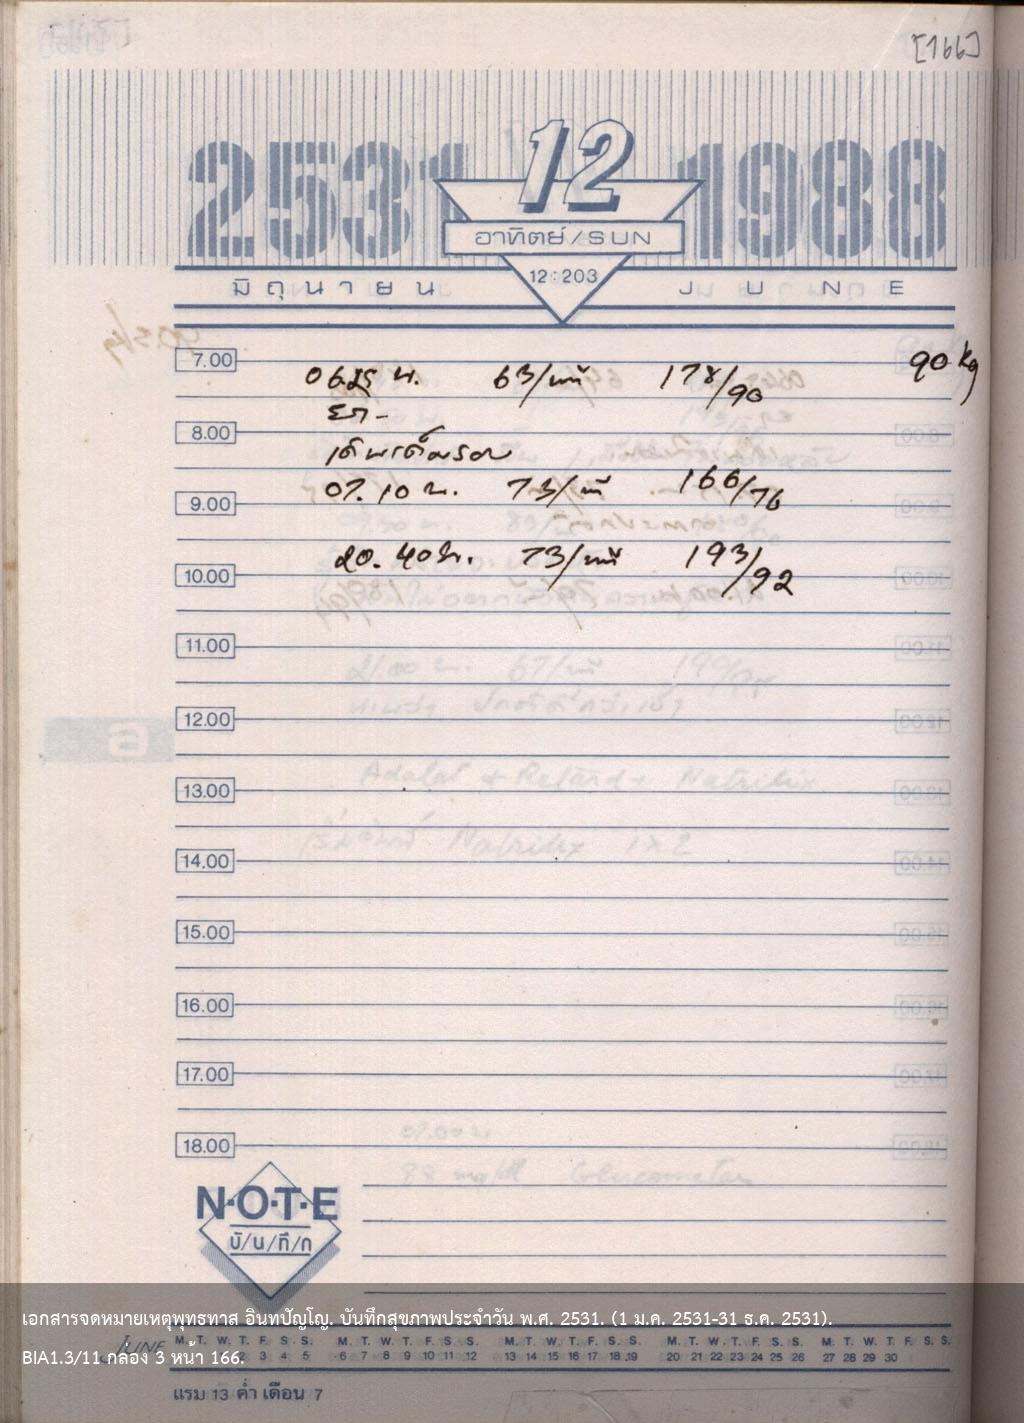 [166]
2531
12
1988
อาทิตย์/SUN
มิถุนายน
12:203
JUNE
7.00
90 kg
63/นาที
178/90
8.00
07.10 น. 73/นาที 166/76
9.00
20.40 น. 73/นาที 193/92
10.00
11.00
12.00
13.00
14.00
15.00
16.00
17.00
18.00
N·O·T·E
บั/น/ทึ/ก
เอกสารจดหมายเหตุพุทธทาส อินทปัญโญ. บันทึกสุขภาพประจำวัน พ.ศ. 2531. (1 ม.ค. 2531-31 ธ.ค. 2531).
JUNE M. T. W. T. F. S. S. M. T. W. T. F. S. S. M. T. W. T. F. S. S. M. T. W. T. F. S. S. M. T. W. T. F. S. S.
BIA1.3/11 กล่อง 3 หน้า 166.
2 3 4 5 6 7 8 9 10 11 12 13 14 15 16 17 18 19 20 21 22 23 24 25 26 27 28 29 30
แรม 13 ค่ำ เดือน 7